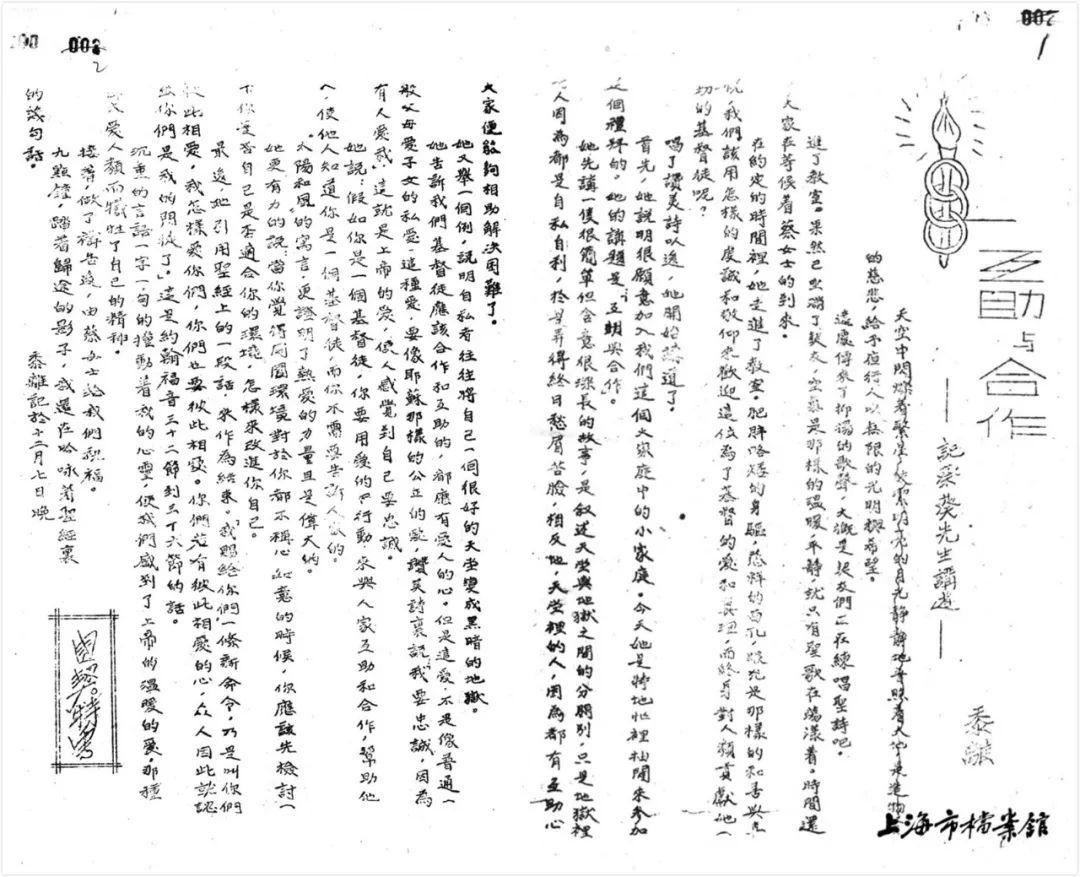 002
1
互助与合作
——記蔡葵先生講道——
黍離
天空中閃爍着繁星，皎潔明亮的月光靜靜地普照着大地是造物
的慈悲，給予夜行人以無限的光明撫希望。
遠處傳來了抑揚的歌聲，大概是契友們正在練唱聖詩吧。
進了教室。果然已坐滿了契友，空氣是那樣的溫暖，平靜，就只有聖歌在蕩漾着。時間還
大家在等候着蔡女士的到來。
在約定的時間裡，她走進了教室。肥胖略矮的身軀，慈祥的面孔，
我們該用怎樣的虔誠和敬仰來歡迎這位為了基督的愛和真理，而終身對人類貢獻她一
切的基督徒呢？
唱了讚美詩以後，她開始講道了。
首先，她說明很願意加入我們這個大家庭中的小家庭。今天她是特地忙裡抽閒來參加
這個禮拜的。她的講題是「互助與合作」。
她先講一隻很簡單但含意很深長的故事，是叙述天堂與地獄之間的分別，只是地獄裡
人因為都是自私自利，於是弄得終日愁眉苦臉，相反地，天堂裡的人，因為都有互助心
002
2
大家便能夠相助解決困難了。
她又舉一個例，說明自私者往往將自己一個很好的天堂變成黑暗的地獄。
她告訴我們基督徒應該合作和互助的，都應有愛人的心。但是這愛，不是像普通一
般父母愛子女的私愛，這種愛，要像耶穌那樣的公正的愛，讚美詩裏說「我要忠誠，因為
有人愛我，」這就是上帝的愛，使人感覺到自己要忠誠。
她說：假如你是一個基督徒，你要用愛的行動，來與人家互助和合作，幫助他
人，使他人知道你是一個基督徒而你不需要告訴人家的。
「太陽和風」的寓言，更證明了熱愛的力量且是偉大的。
她更有力的說：當你覺得周圍環境對於你都不稱心如意的時候，你應該先檢討一
下你是否自己是否適合你的環境，怎樣來改進你自己。
最後，她引用聖經上的一段話，來作為結束。「我賜給你們一條新命令，乃是叫你們
彼此相愛，我怎樣愛你們，你們也要彼此相愛。你們若有彼此相愛的心，众人因此就認
你們是我的門徒了」，這是約翰福音三十二節到三十六節的話。
沉重的言語一字一句的撞動着我的心靈，使我們感到了上帝的溫暖的愛，那種
愛人類而犧牲了自己的精神。
接着，做了禱告後，由蔡女士給我們祝福。
九點鐘，踏着歸途的影子，我還在吟咏着聖經裏
的幾句話。
黍離記於十二月七日晚
團契特寫
上海市檔案館